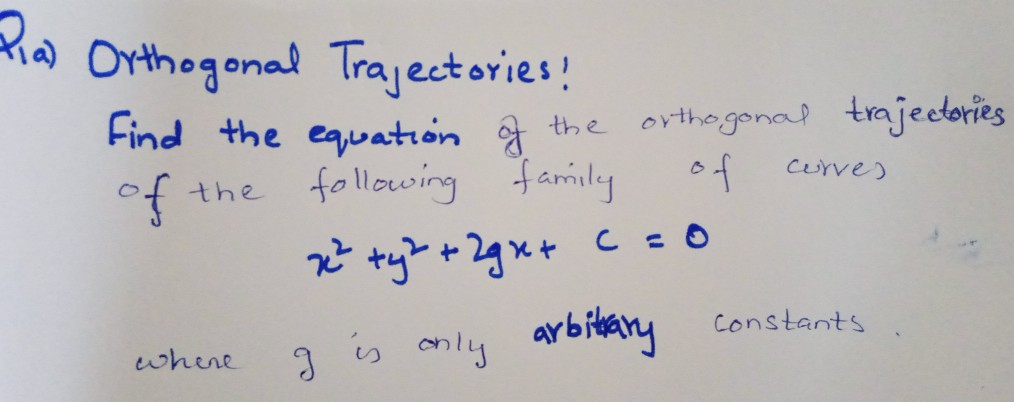 Q1a) Orthogonal Trajectories!
Find the equation of the orthogonal trajectories
of the following family of curves
x² + y² + 2gx + C = 0
where g is only arbitrary constants.